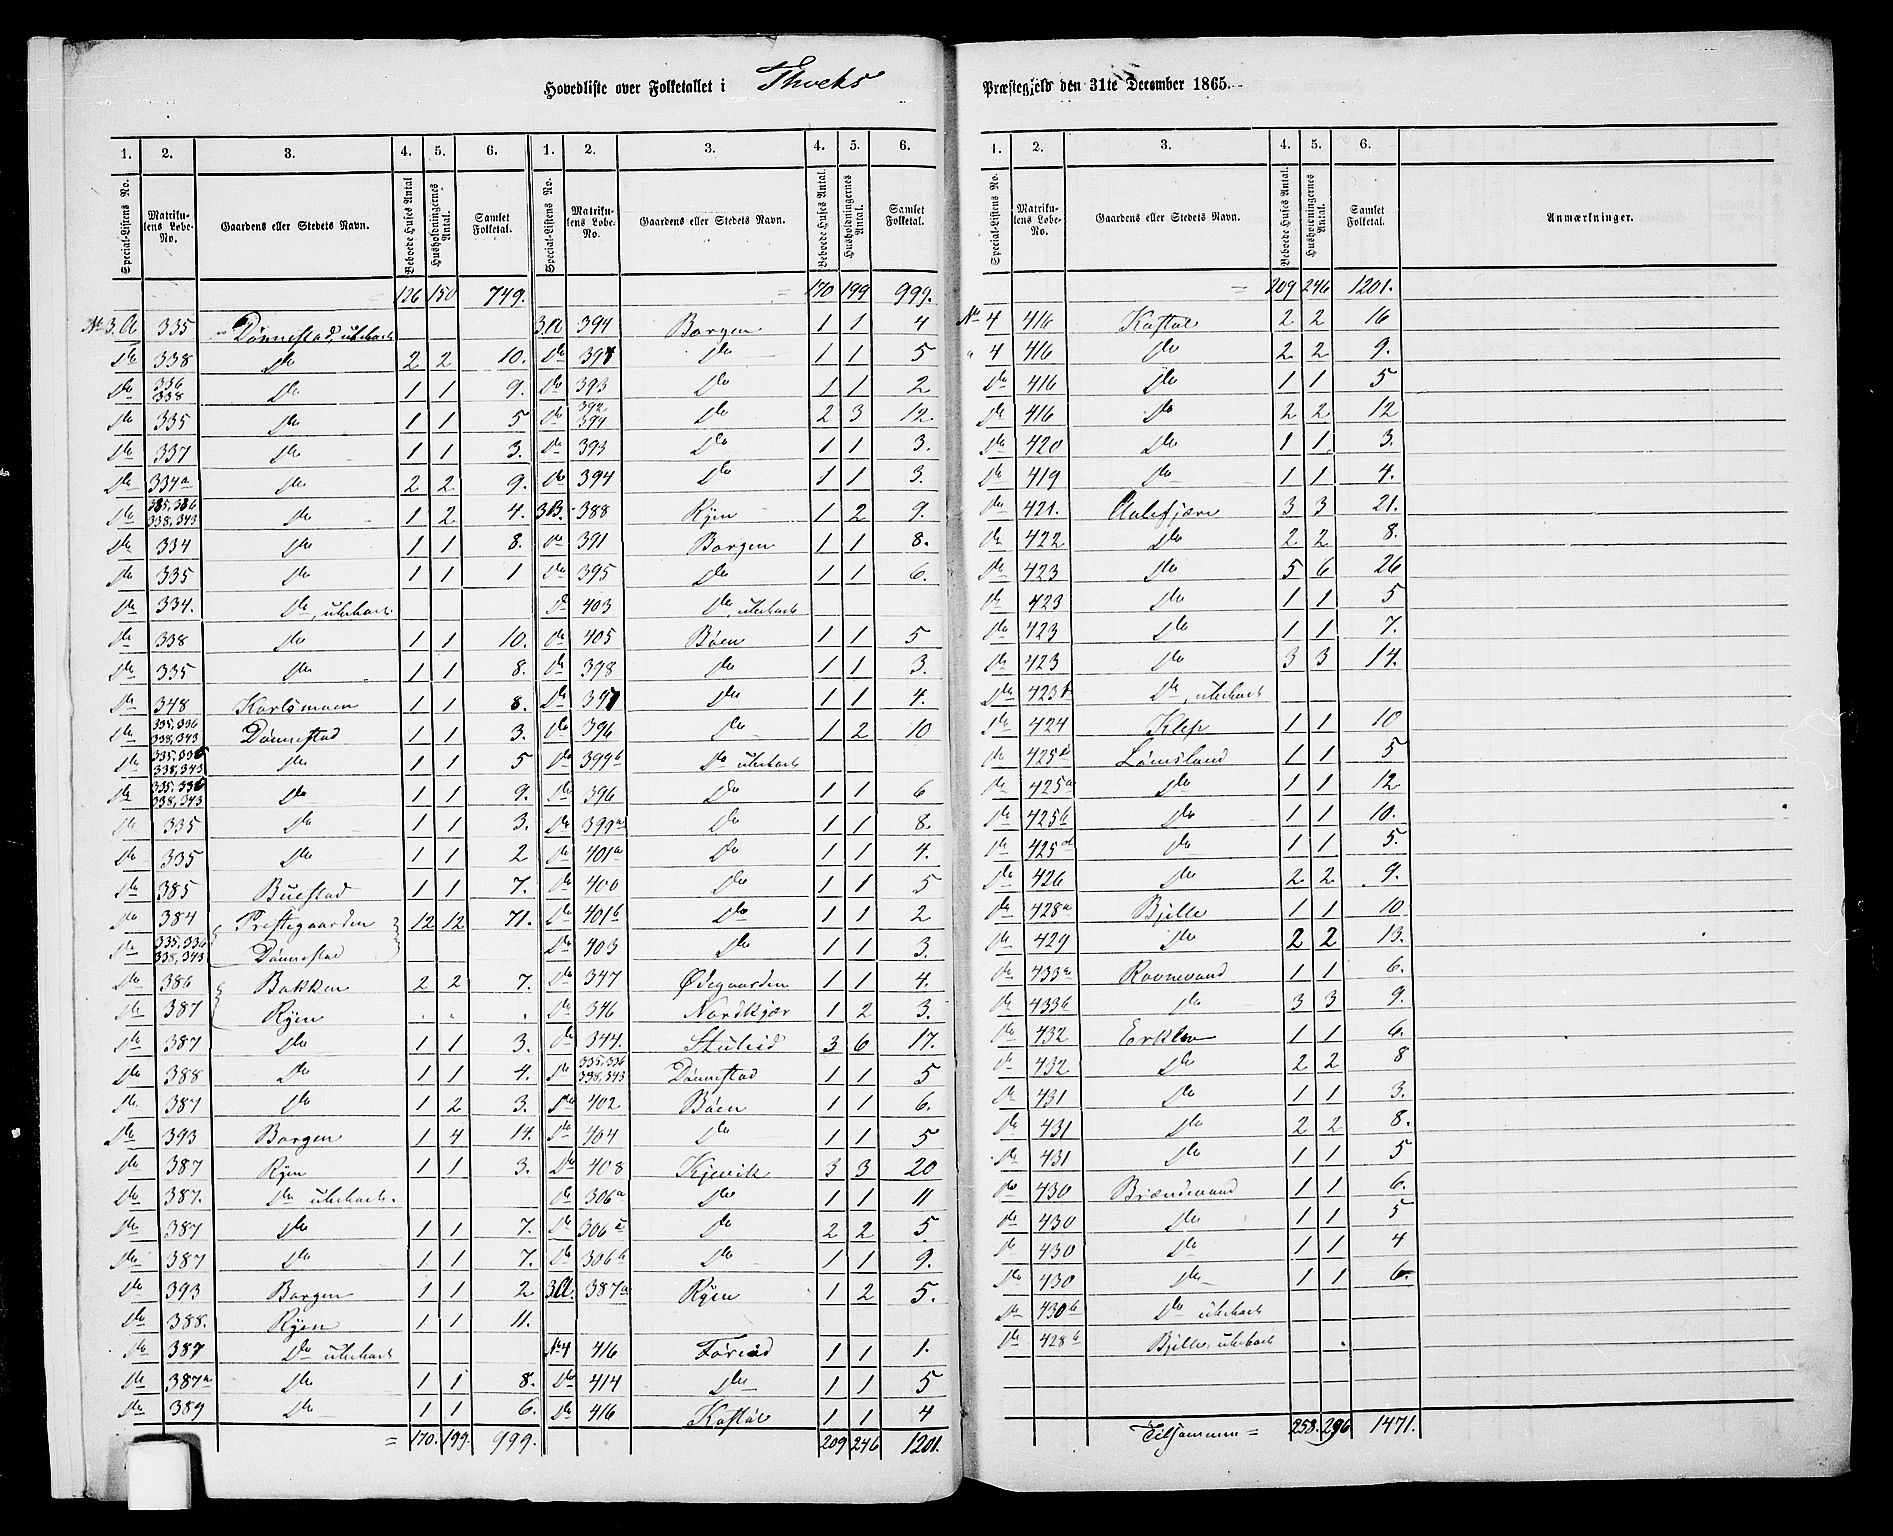 Hovedliste over Folketallet i Thveds Præstegjeld den 31te December 1865.
1. 2. 3. 4. 5. 6. 1. 2. 3. 4. 5. 6.
Special-Listens No. Matrikulens Løbe-No. Gaardens eller Stedets Navn. Beboede Huses Antal Husholdningernes Antal. Samlet Folketal. Special-Listens No. Matrikulens Løbe-No. Gaardens eller Stedets Navn. Beboede Huses Antal. Husholdningernes Antal. Samlet Folketal.
= 126 150 749. = 170 199 999.
No 3.A 335 Dønnestad, ubeboet 3.A 394 Borgen 1 1 4
Do 338 Do 2 2 10. Do 391 Do 1 1 5
Do 336 338 Do 1 1 9. Do 393 Do 1 1 2
Do 335 Do 1 1 5 Do 392 394 Do 2 3 12.
Do 337 Do 1 1 3. Do 393 Do 1 1 3.
Do 334a Do 2 2 9. Do 394 Do 1 1 3.
Do 335,336 338,343 Do 1 2 4. 3B. 388 Ryen 1 2 9.
Do 334 Do 1 1 8. Do 391 Borgen 1 1 8.
Do 335 Do 1 1 1 Do 395 Do 1 1 6.
Do 334. Do, ubeboet Do 403 Do, ubeboet
Do 338 Do 1 1 10. Do 405 Bøen 1 1 5
Do 335 Do 1 1 8. Do 398 Do 1 1 3.
Do 348 Karlsmoen 1 1 8. Do 397 Do 1 1 4.
Do 335,336 338,343 Dønnestad 1 1 3. Do 396 Do 1 2 10
Do 335,336 338,343 Do 1 1 5 Do 399b Do ubeboet
Do 335,336 338,343 Do 1 1 9. Do 396 Do 1 1 6
Do 335 Do 1 1 3. Do 399a Do 1 1 8.
Do 335 Do 1 1 2 Do 401a Do 1 1 4.
Do 385 Buestad 1 1 7. Do 400 Do 1 1 5
Do 384 Prestegaarden 12 12 71. Do 401b Do 1 1 2
Do 335,336 338,343 Dønnestad Do 403 Do 1 1 3.
Do 386 Bakken 2 2 7. Do 347 Ødegaarden 1 1 4.
Do 387 Ryen . . . Do 346 Nordkjær 1 2 3.
Do 387 Do 1 1 3. Do 344. Stulsid 3 6 17.
Do 388 Do 1 1 4. Do 335,336 338,343 Dønnestad 1 1 5
Do 387 Do 1 2 3. Do 402 Bøen 1 1 6.
Do 393 Borgen 1 4 14. Do 404 Do 1 1 5
Do 387 Ryen 1 1 3. Do 408 Kjevik 3 3 20
Do 387. Do ubeboet. Do 306a Do 1 1 11
Do 387 Do 1 1 7. Do 306c Do 2 2 5.
Do 387 Do 1 1 7. Do 306b Do 1 1 9.
Do 393 Borgen 1 1 2 3.A. 387a Ryen 1 2 5.
Do 388. Ryen 1 1 11.
Do 387 Do ubeboet No 4 416 Foreid 1 1 1.
Do 387a Do 1 1 8. Do 414 Do 1 1 5
Do 389 Do 1 1 6. Do 416 Kostøl 1 1 4
= 170. 199. 999. 209 246 1201.
1. 2. 3. 4. 5. 6.
Special-Listens No. Matrikulens Løbe-No. Gaardens eller Stedets Navn. Beboede Huses Antal. Husholdningernes Antal. Samlet Folketal. Anmærkninger.
= 209 246 1201.
No 4 416 Kostøl 2 2 16
" 4 416 Do 2 2 9.
Do 416 Do 1 1 5
Do 416 Do 2 2 12
Do 420 Do 1 1 3.
Do 419 Do 1 1 4.
Do 421. Aalefjær 3 3 21.
Do 422 Do 2 2 8.
Do 423 Do 5 6 26
Do 423 Do 1 1 5
Do 423 Do 1 1 7.
Do 423 Do 3 3 14.
Do 423b Do, ubeboet
Do 424 Klep 1 1 10
Do 425c Lømsland 1 1 5
Do 425a Do 1 1 12
Do 425b Do 1 1 10.
Do 425d Do 1 1 5.
Do 426 Do 2 2 9.
Do 428a Bjelle 1 1 10
Do 429 Do 2 2 13.
Do 433a Rovnevand 1 1 6.
Do 433b Do 3 3 9.
Do 432 Erklev 1 1 6.
Do 432 Do 2 2 8
Do 431 Do 1 1 3.
Do 431 Do 2 2 8.
Do 431 Do 1 1 5
Do 430 Brændevand 1 1 6.
Do 430 Do 1 1 5
Do 430 Do 1 1 4
Do 430 Do 1 1 6.
Do 430b Do ubeboet
Do 428b Bjelle, ubeboet
Tilsammen = 258. 296 1471.